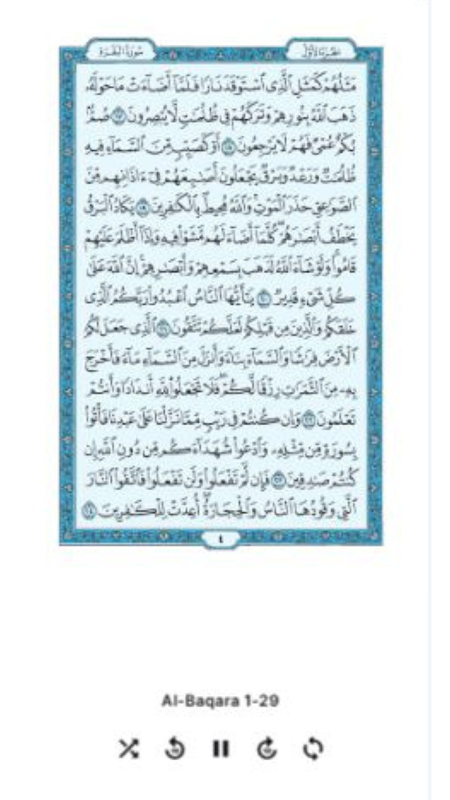 سُورَةُ البَقَرَة الجُزءُ الأَوَّلُ
مَثَلُهُمْ كَمَثَلِ ٱلَّذِى ٱسْتَوْقَدَ نَارًا فَلَمَّآ أَضَآءَتْ مَا حَوْلَهُۥ
ذَهَبَ ٱللَّهُ بِنُورِهِمْ وَتَرَكَهُمْ فِى ظُلُمَٰتٍ لَّا يُبْصِرُونَ ١٧ صُمٌّۢ
بُكْمٌ عُمْىٌ فَهُمْ لَا يَرْجِعُونَ ١٨ أَوْ كَصَيِّبٍ مِّنَ ٱلسَّمَآءِ فِيهِ
ظُلُمَٰتٌ وَرَعْدٌ وَبَرْقٌ يَجْعَلُونَ أَصَٰبِعَهُمْ فِىٓ ءَاذَانِهِم مِّنَ
ٱلصَّوَٰعِقِ حَذَرَ ٱلْمَوْتِ وَٱللَّهُ مُحِيطٌۢ بِٱلْكَٰفِرِينَ ١٩ يَكَادُ ٱلْبَرْقُ
يَخْطَفُ أَبْصَٰرَهُمْ كُلَّمَآ أَضَآءَ لَهُم مَّشَوْا۟ فِيهِ وَإِذَآ أَظْلَمَ عَلَيْهِمْ
قَامُوا۟ وَلَوْ شَآءَ ٱللَّهُ لَذَهَبَ بِسَمْعِهِمْ وَأَبْصَٰرِهِمْ إِنَّ ٱللَّهَ عَلَىٰ
كُلِّ شَىْءٍ قَدِيرٌ ٢٠ يَٰٓأَيُّهَا ٱلنَّاسُ ٱعْبُدُوا۟ رَبَّكُمُ ٱلَّذِى
خَلَقَكُمْ وَٱلَّذِينَ مِن قَبْلِكُمْ لَعَلَّكُمْ تَتَّقُونَ ٢١ ٱلَّذِى جَعَلَ لَكُمُ
ٱلْأَرْضَ فِرَٰشًا وَٱلسَّمَآءَ بِنَآءً وَأَنزَلَ مِنَ ٱلسَّمَآءِ مَآءً فَأَخْرَجَ
بِهِۦ مِنَ ٱلثَّمَرَٰتِ رِزْقًا لَّكُمْ فَلَا تَجْعَلُوا۟ لِلَّهِ أَندَادًا وَأَنتُمْ
تَعْلَمُونَ ٢٢ وَإِن كُنتُمْ فِى رَيْبٍ مِّمَّا نَزَّلْنَا عَلَىٰ عَبْدِنَا فَأْتُوا۟
بِسُورَةٍ مِّن مِّثْلِهِۦ وَٱدْعُوا۟ شُهَدَآءَكُم مِّن دُونِ ٱللَّهِ إِن
كُنتُمْ صَٰدِقِينَ ٢٣ فَإِن لَّمْ تَفْعَلُوا۟ وَلَن تَفْعَلُوا۟ فَٱتَّقُوا۟ ٱلنَّارَ
ٱلَّتِى وَقُودُهَا ٱلنَّاسُ وَٱلْحِجَارَةُ أُعِدَّتْ لِلْكَٰفِرِينَ ٢٤
٤
Al-Baqara 1-29